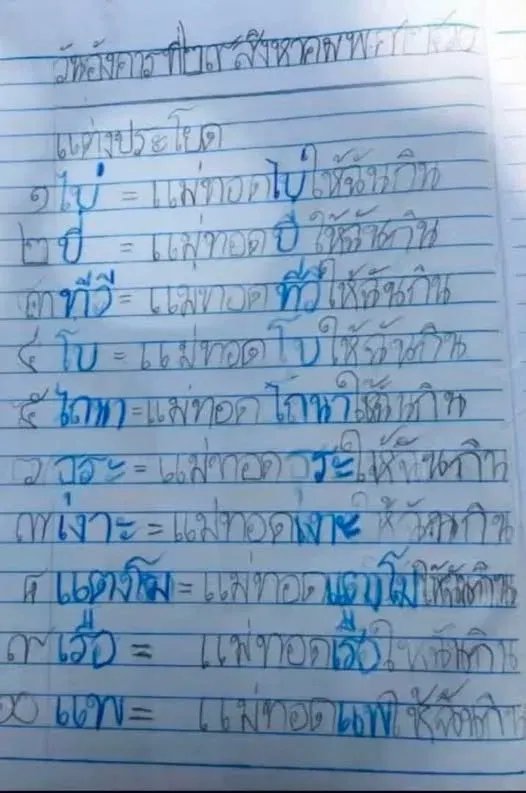 วันอังคาร ที่ ๒๙ สิงหาคม พ.ศ.
แต่งประโยค
๑ ไข่ = แม่ทอดไข่ให้ฉันกิน
๒ ปี่ = แม่ทอด ปี่ ให้ฉันกิน
๓ ทีวี = แม่ทอด ทีวี ให้ฉันกิน
๔ โบ = แม่ทอด โบ ให้ฉันกิน
๕ ไถนา = แม่ทอด ไถนา ให้ฉันกิน
๖ ธุระ = แม่ทอด ธุระ ให้ฉันกิน
๗ เงาะ = แม่ทอดเงาะ ให้ฉันกิน
๘ แตงโม = แม่ทอดแตงโมให้ฉันกิน
๙ เรือ = แม่ทอดเรือให้ฉันกิน
๑๐ แพ = แม่ทอดแพให้ฉันกิน